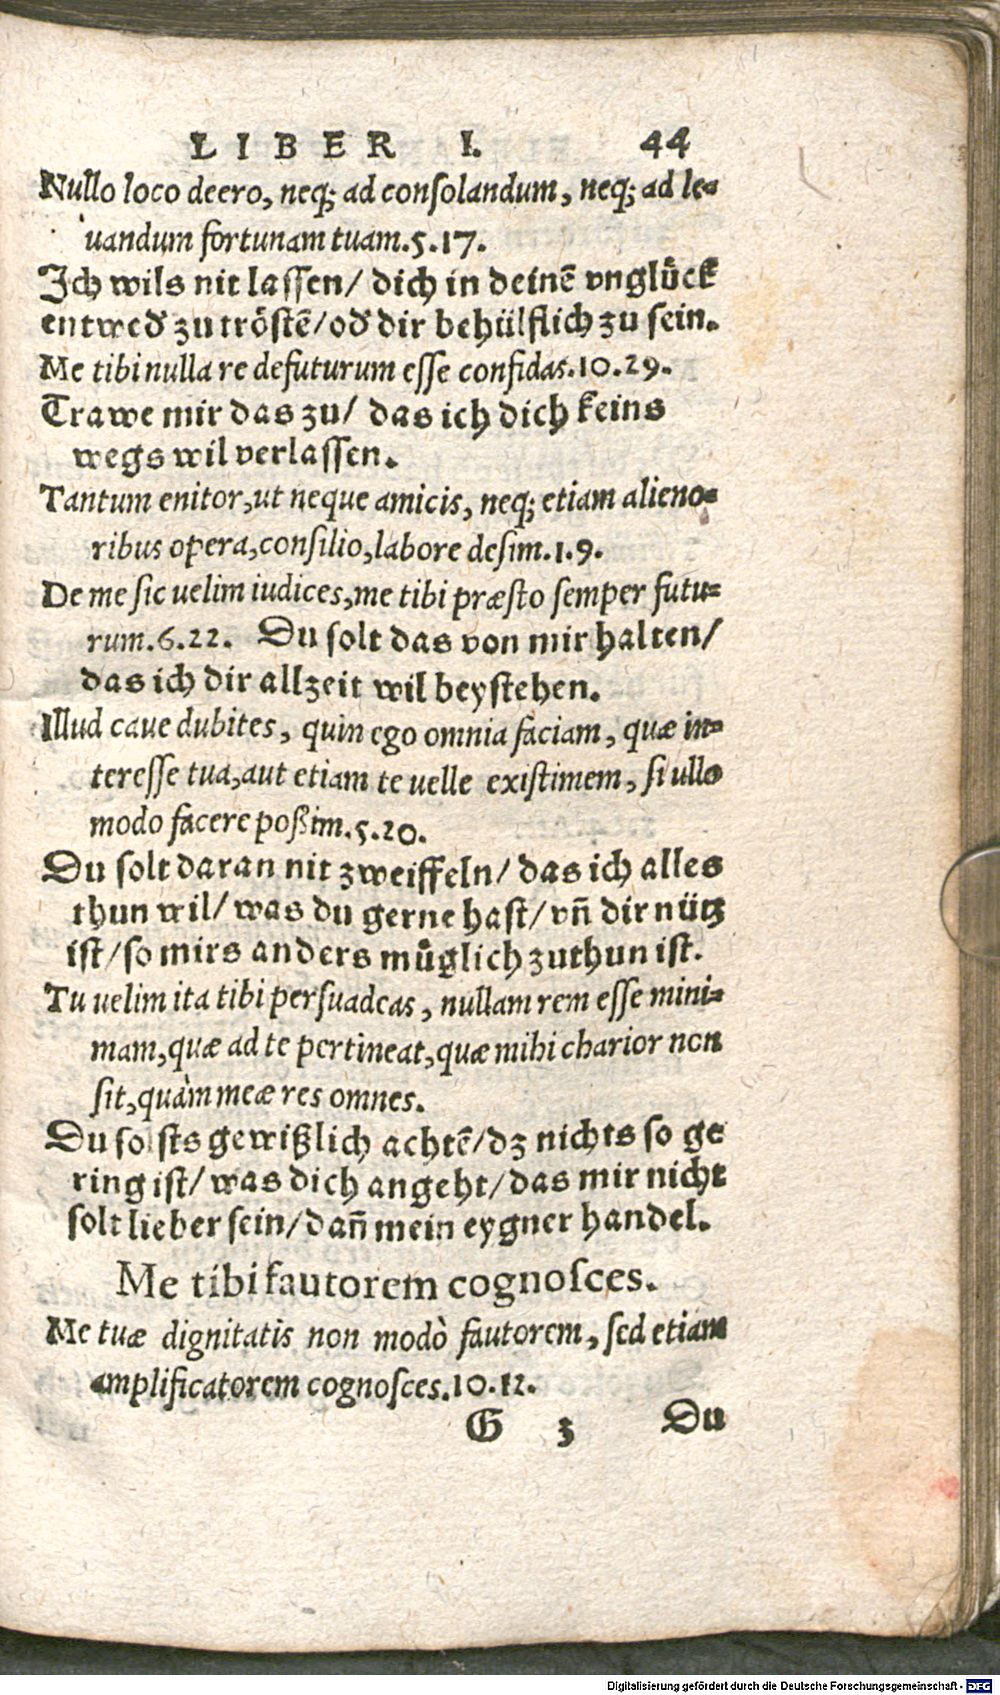 LIBER I. 44
Nullo loco deero, neq; ad conſolandum, neq; ad le-
uandum fortunam tuam.5.17.
Ich wils nit laſſen/ dich in deinē vnglůck
entwed̕ zu tröſtē/od̕ dir behülflich zu ſein.
Me tibi nulla re defuturum eſſe confidas.10.29.
Trawe mir das zu/ das ich dich keins
wegs wil verlaſſen.
Tantum enitor,ut neque amicis, neq; etiam alieno-
ribus opera,conſilio,labore deſim.1.9.
De me ſic uelim iudices,me tibi præſto ſemper futu-
rum.6.22. Du ſolt das von mir halten/
das ich dir allzeit wil beyſtehen.
Illud caue dubites, quin ego omnia faciam, quæ in-
tereſſe tua,aut etiam te uelle exiſtimem, ſi ullo
modo facere poßim.5.20.
Du ſolt daran nit zweiffeln/ das ich alles
thun wil/ was du gerne haſt/ vn̄ dir nütz
iſt/ſo mirs anders můglich zuthun iſt.
Tu uelim ita tibi perſuadeas, nullam rem eſſe mini-
mam,quæ ad te pertineat,quæ mihi charior non
ſit,quàm meæ res omnes.
Du ſolſts gewißlich achtē/dz nichts ſo ge
ring iſt/ was dich angeht/das mir nicht
ſolt lieber ſein/dan̄ mein eygner handel.
Me tibi fautorem cognoſces.
Me tuæ dignitatis non modò fautorem, ſed etiam
amplificatorem cognoſces.10.12.
G 3 Du
Digitalisierung gefördert durch die Deutsche Forschungsgemeinschaft - DFG